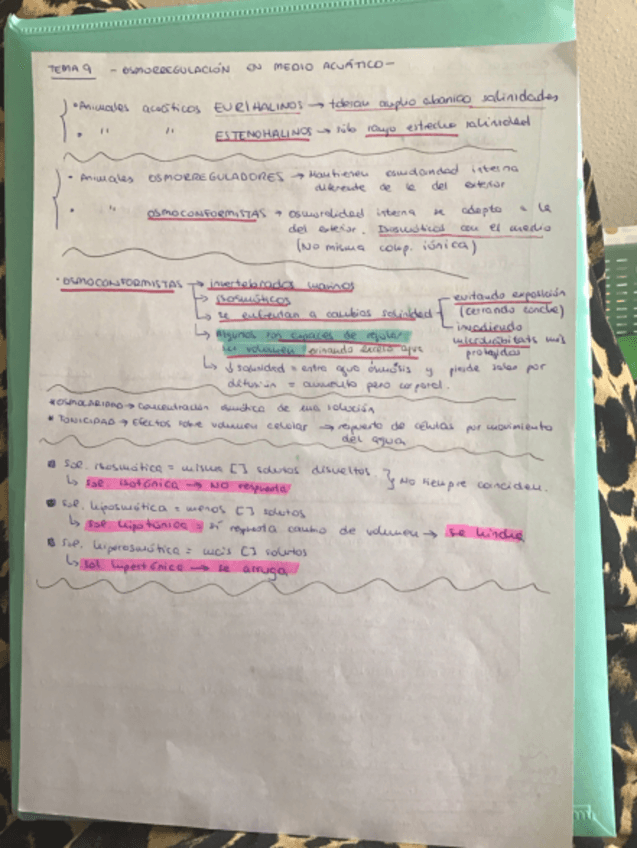 TEMA 9 - OSMORREGULACIÓN EN MEDIO ACUÁTICO -
• Animales acuáticos EURIHALINOS → toleran amplio abanico salinidades
• " " ESTENOHALINOS → sólo rango estrecho salinidad
• Animales OSMORREGULADORES → Mantienen osmolaridad interna
diferente de la del exterior
• " OSMOCONFORMISTAS → osmolaridad interna se adapta a la
del exterior. Isosmóticos con el medio
(No misma comp. iónica)
• OSMOCONFORMISTAS → invertebrados marinos
↳ isosmóticos
↳ se enfrentan a cambios salinidad
evitando exposición
(cerrando concha)
invadiendo
microhábitats más
protegidos
↳ algunos son capaces de regular
su volumen eliminando exceso agua
↳ ↓ salinidad = entra agua ósmosis y pierde sales por
difusión = aumento peso corporal.
* OSMOLARIDAD → concentración osmótica de una solución
* TONICIDAD → Efectos sobre volumen celular → respuesta de células por movimiento
del agua
Sol. isosmótica = misma [ ] solutos disueltos } No siempre coinciden.
↳ sol. isotónica → NO respuesta
Sol. hiposmótica = menos [ ] solutos
↳ sol hipotónica = sí respuesta cambio de volumen → se hincha
Sol. hiperosmótica = más [ ] solutos
↳ sol hipertónica → se arruga